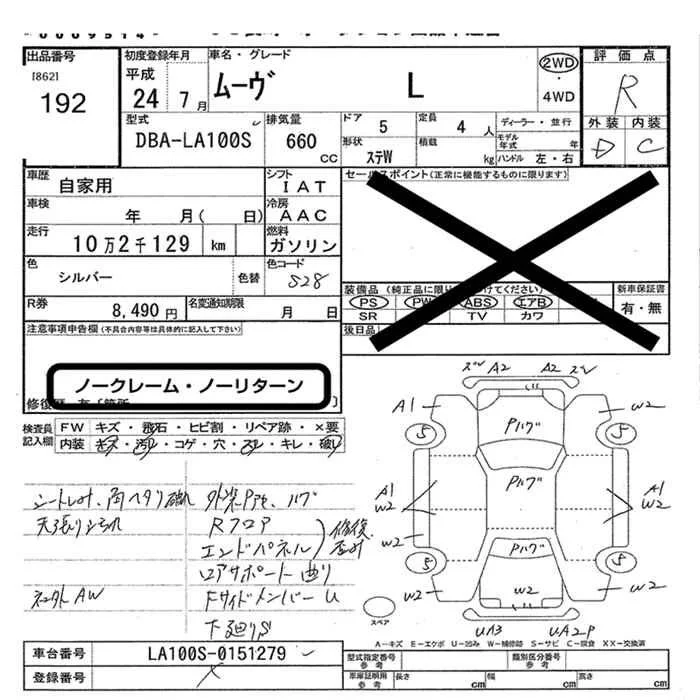 出品番号
[862]
192
初度登録年月
平成
24 7月
車名・グレード
ムーヴ L
2WD
・
4WD
評価点
R
外装 内装
D C
型式
DBA-LA100S
排気量
660 CC
ドア 5
定員 4 人
形状 ステW
積載 kg
ディーラー・並行
モデル年式 年
ハンドル 左・右
車歴 自家用
シフト IAT
車検 年 月( 日)
冷房 AAC
走行 10万2千129 km
燃料 ガソリン
色 シルバー 色替
色コード S28
R券 8,490円
名変通知期限 月 日
セールスポイント(正常に機能するものに限ります)
装備品 (純正品に限り
けてください)
PS PW ABS エアB
SR TV カワ
新車保証書
有・無
後日品
注意事項申告欄(不具合内容等は具体的に記入して下さい)
ノークレーム・ノーリターン
検査員記入欄
FW キズ・飛石・ヒビ割・リペア跡・×要
内装 キズ・汚れ・コゲ・穴・スレ・キレ・破れ
天張り
外装
Rフロア
エンドパネル
修復
ロアサポート曲り
AW
Fサイドメンバー
下廻りS
A2 A2
A1 W2
Pハゲ
5 5
Pハゲ
A1 W2
A1 W2
W2
Pハゲ
5 5
W2 W2 W2
UA3 UA2P
スペア
A-キズ E-エクボ U-凹み W-補修跡 S-サビ C-腐食 XX-交換済
車台番号 LA100S-0151279
登録番号
型式指定番号
参考
類別区分番号
参考
車庫証明用
参考
長さ cm 幅 cm 高さ cm